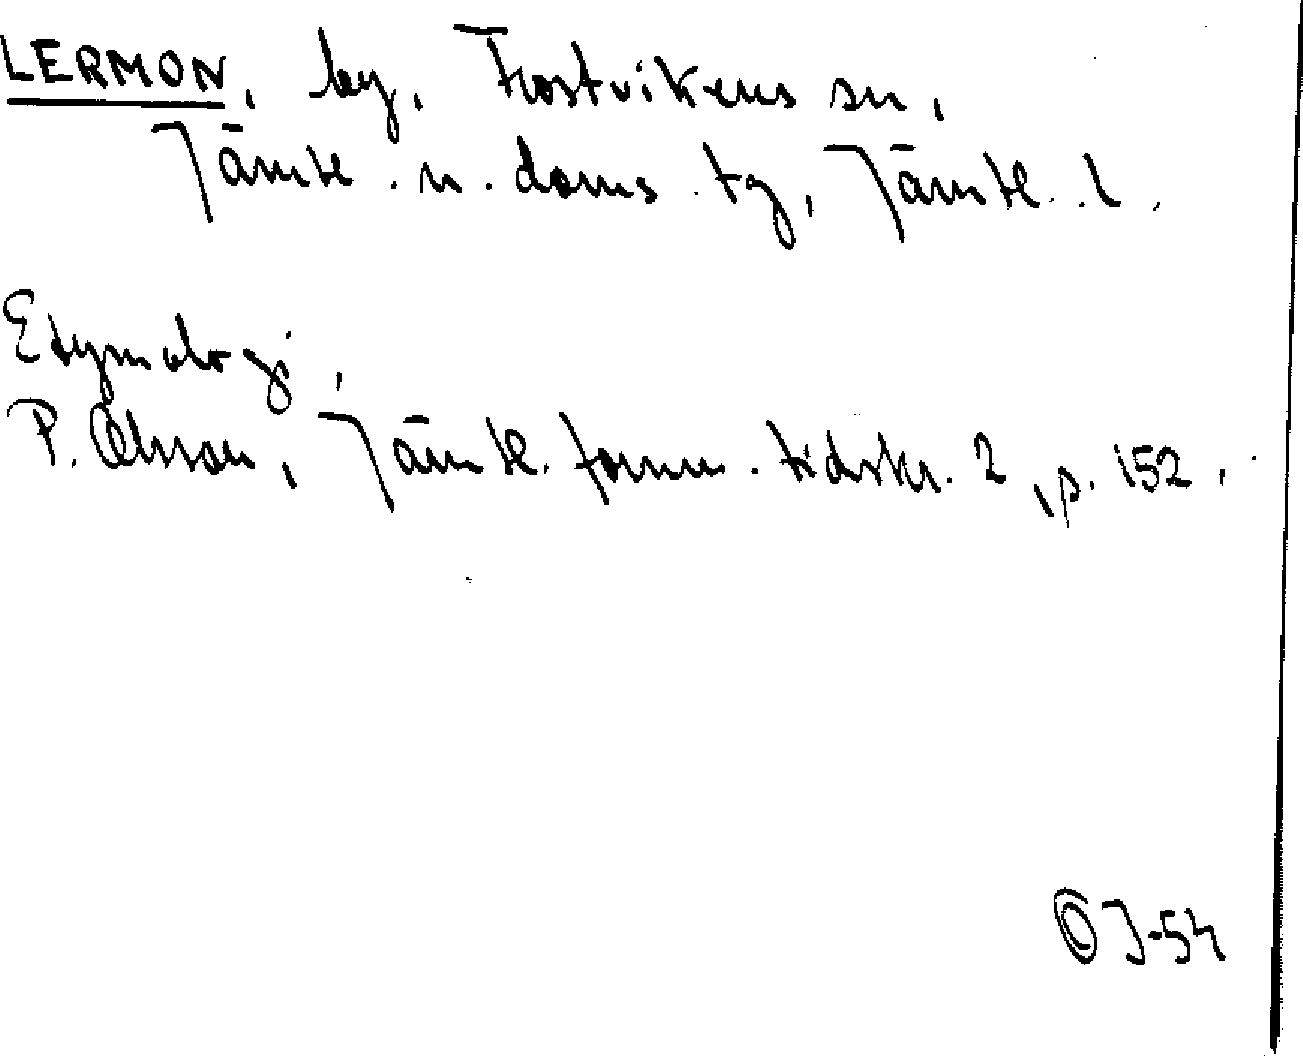 LERMON, by, Frostvikens sn,
Jämtl. n. doms. tg, Jämtl. l.
Etymologi,
P. Olsson, Jämtl. fornm. tidskr. 2, p. 152.
OJ-54